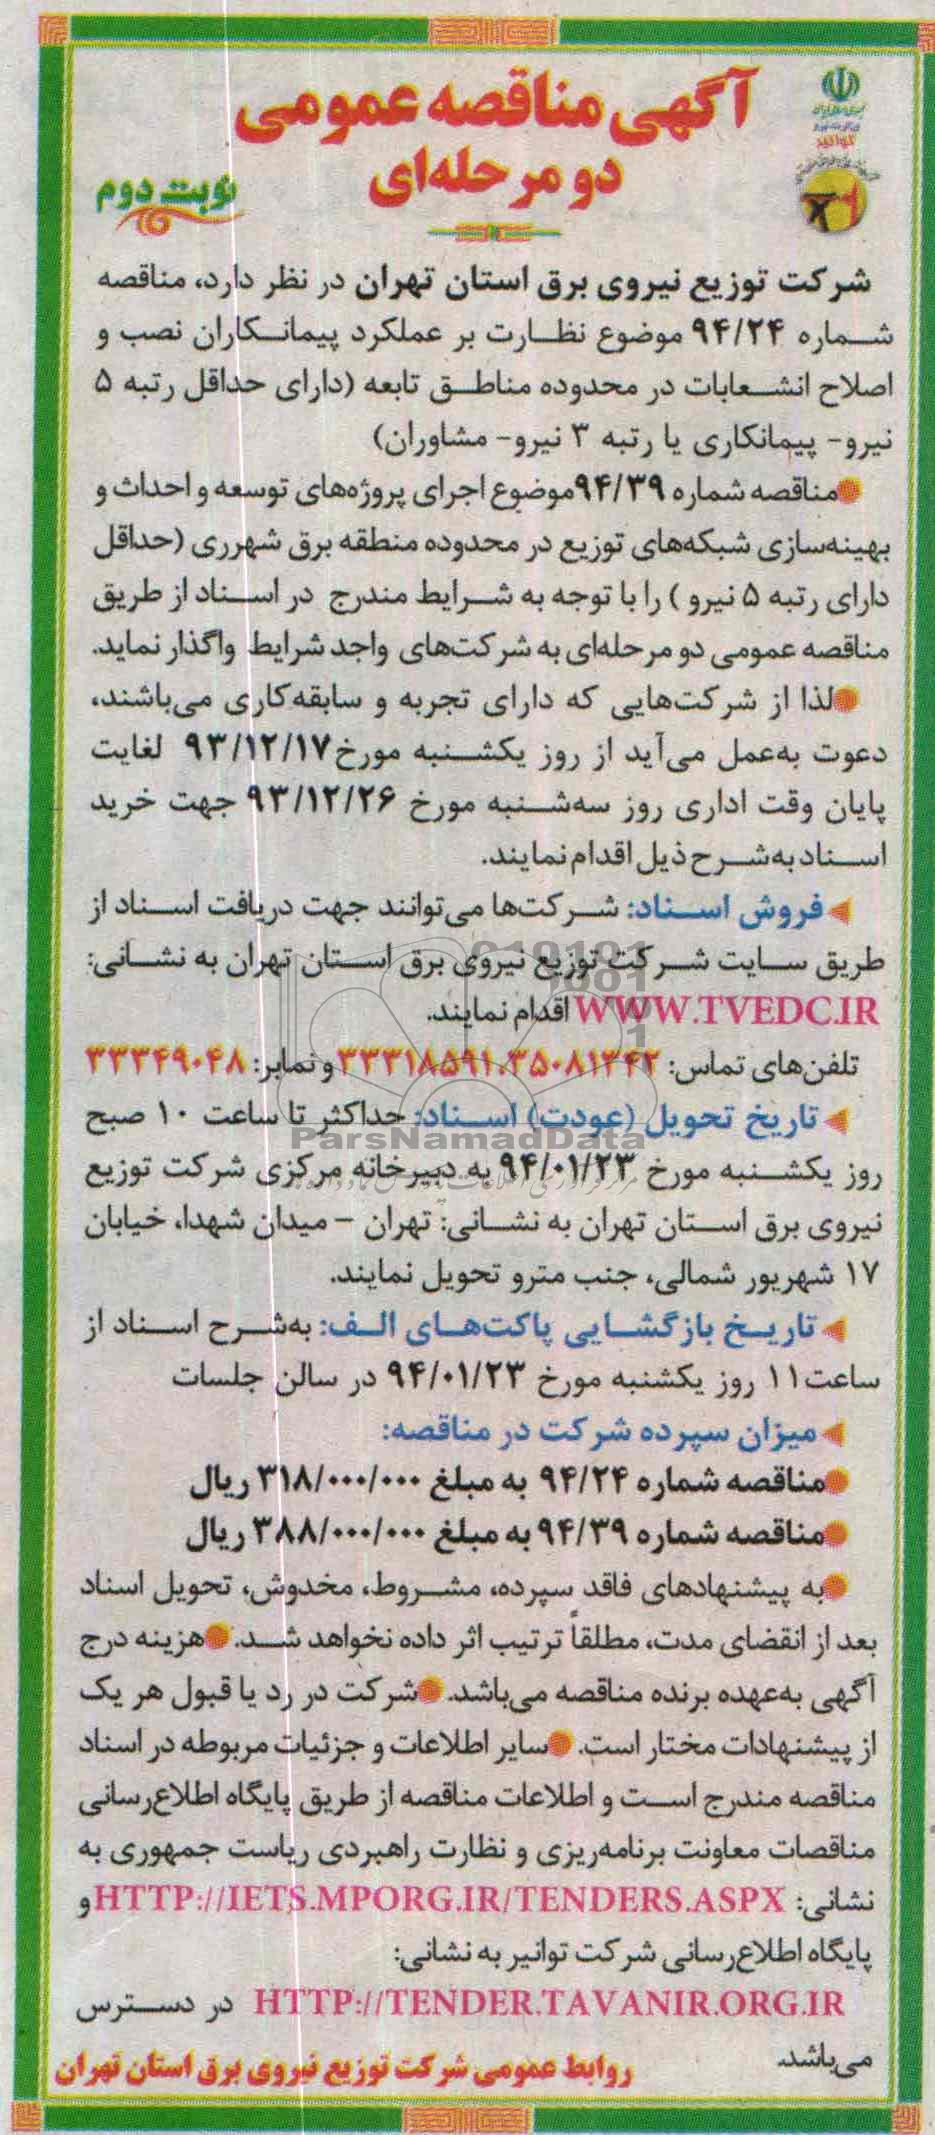 آگهی مناقصه عمومی
دو مرحله‌ای
نوبت دوم
توانیر
شرکت توزیع نیروی برق استان تهران در نظر دارد، مناقصه
شماره ۹۴/۲۴ موضوع نظارت بر عملکرد پیمانکاران نصب و
اصلاح انشعابات در محدوده مناطق تابعه (دارای حداقل رتبه ۵
نیرو- پیمانکاری یا رتبه ۳ نیرو- مشاوران)
مناقصه شماره ۹۴/۳۹موضوع اجرای پروژه‌های توسعه و احداث و
بهینه‌سازی شبکه‌های توزیع در محدوده منطقه برق شهرری (حداقل
دارای رتبه ۵ نیرو ) را با توجه به شرایط مندرج در اسناد از طریق
مناقصه عمومی دو مرحله‌ای به شرکت‌های واجد شرایط واگذار نماید.
لذا از شرکت‌هایی که دارای تجربه و سابقه کاری می‌باشند،
دعوت به‌عمل می‌آید از روز یکشنبه مورخ ۹۳/۱۲/۱۷ لغایت
پایان وقت اداری روز سه‌شنبه مورخ ۹۳/۱۲/۲۶ جهت خرید
اسناد به‌شرح ذیل اقدام نمایند.
فروش اسناد: شرکت‌ها می‌توانند جهت دریافت اسناد از
طریق سایت شرکت توزیع نیروی برق استان تهران به نشانی:
WWW.TVEDC.IR اقدام نمایند.
تلفن‌های تماس: ۳۵۰۸۱۳۴۲-۳۳۳۱۸۵۹۱ و نمابر: ۳۳۳۴۹۰۴۸
تاریخ تحویل (عودت) اسناد: حداکثر تا ساعت ۱۰ صبح
ParsNamadData
روز یکشنبه مورخ ۹۴/۰۱/۲۳ به دبیرخانه مرکزی شرکت توزیع
نیروی برق استان تهران به نشانی: تهران – میدان شهدا، خیابان
۱۷ شهریور شمالی، جنب مترو تحویل نمایند.
تاریخ بازگشایی پاکت‌های الف: به‌شرح اسناد از
ساعت۱۱ روز یکشنبه مورخ ۹۴/۰۱/۲۳ در سالن جلسات
میزان سپرده شرکت در مناقصه:
مناقصه شماره ۹۴/۲۴ به مبلغ ۳۱۸/۰۰۰/۰۰۰ ریال
مناقصه شماره ۹۴/۳۹ به مبلغ ۳۸۸/۰۰۰/۰۰۰ ریال
به پیشنهادهای فاقد سپرده، مشروط، مخدوش، تحویل اسناد
بعد از انقضای مدت، مطلقاً ترتیب اثر داده نخواهد شد. هزینه درج
آگهی به‌عهده برنده مناقصه می‌باشد. شرکت در رد یا قبول هر یک
از پیشنهادات مختار است. سایر اطلاعات و جزئیات مربوطه در اسناد
مناقصه مندرج است و اطلاعات مناقصه از طریق پایگاه اطلاع‌رسانی
مناقصات معاونت برنامه‌ریزی و نظارت راهبردی ریاست جمهوری به
نشانی: HTTP://IETS.MPORG.IR/TENDERS.ASPX و
پایگاه اطلاع‌رسانی شرکت توانیر به نشانی:
HTTP://TENDER.TAVANIR.ORG.IR در دسترس
می‌باشد.
روابط عمومی شرکت توزیع نیروی برق استان تهران